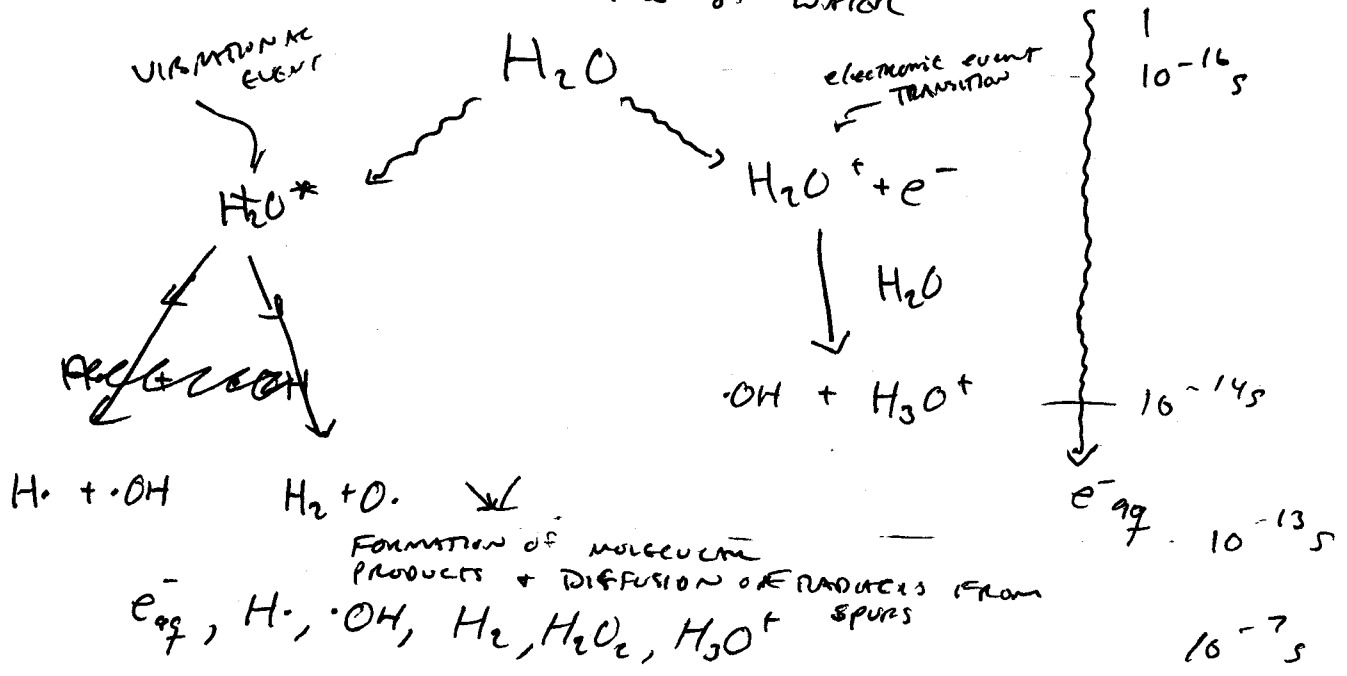 WATER
VIBRATIONAL
EVENT
H₂O
electronic event
TRANSITION
1
10⁻¹⁶ s
H₂O*
H₂O⁺ + e⁻
H₂O
·OH + H₃O⁺
10⁻¹⁴ s
H· + ·OH
H₂ + O·
e⁻aq
10⁻¹³ s
FORMATION OF MOLECULAR
PRODUCTS + DIFFUSION OF RADICALS FROM
SPURS
e⁻aq, H·, ·OH, H₂, H₂O₂, H₃O⁺
10⁻⁷ s